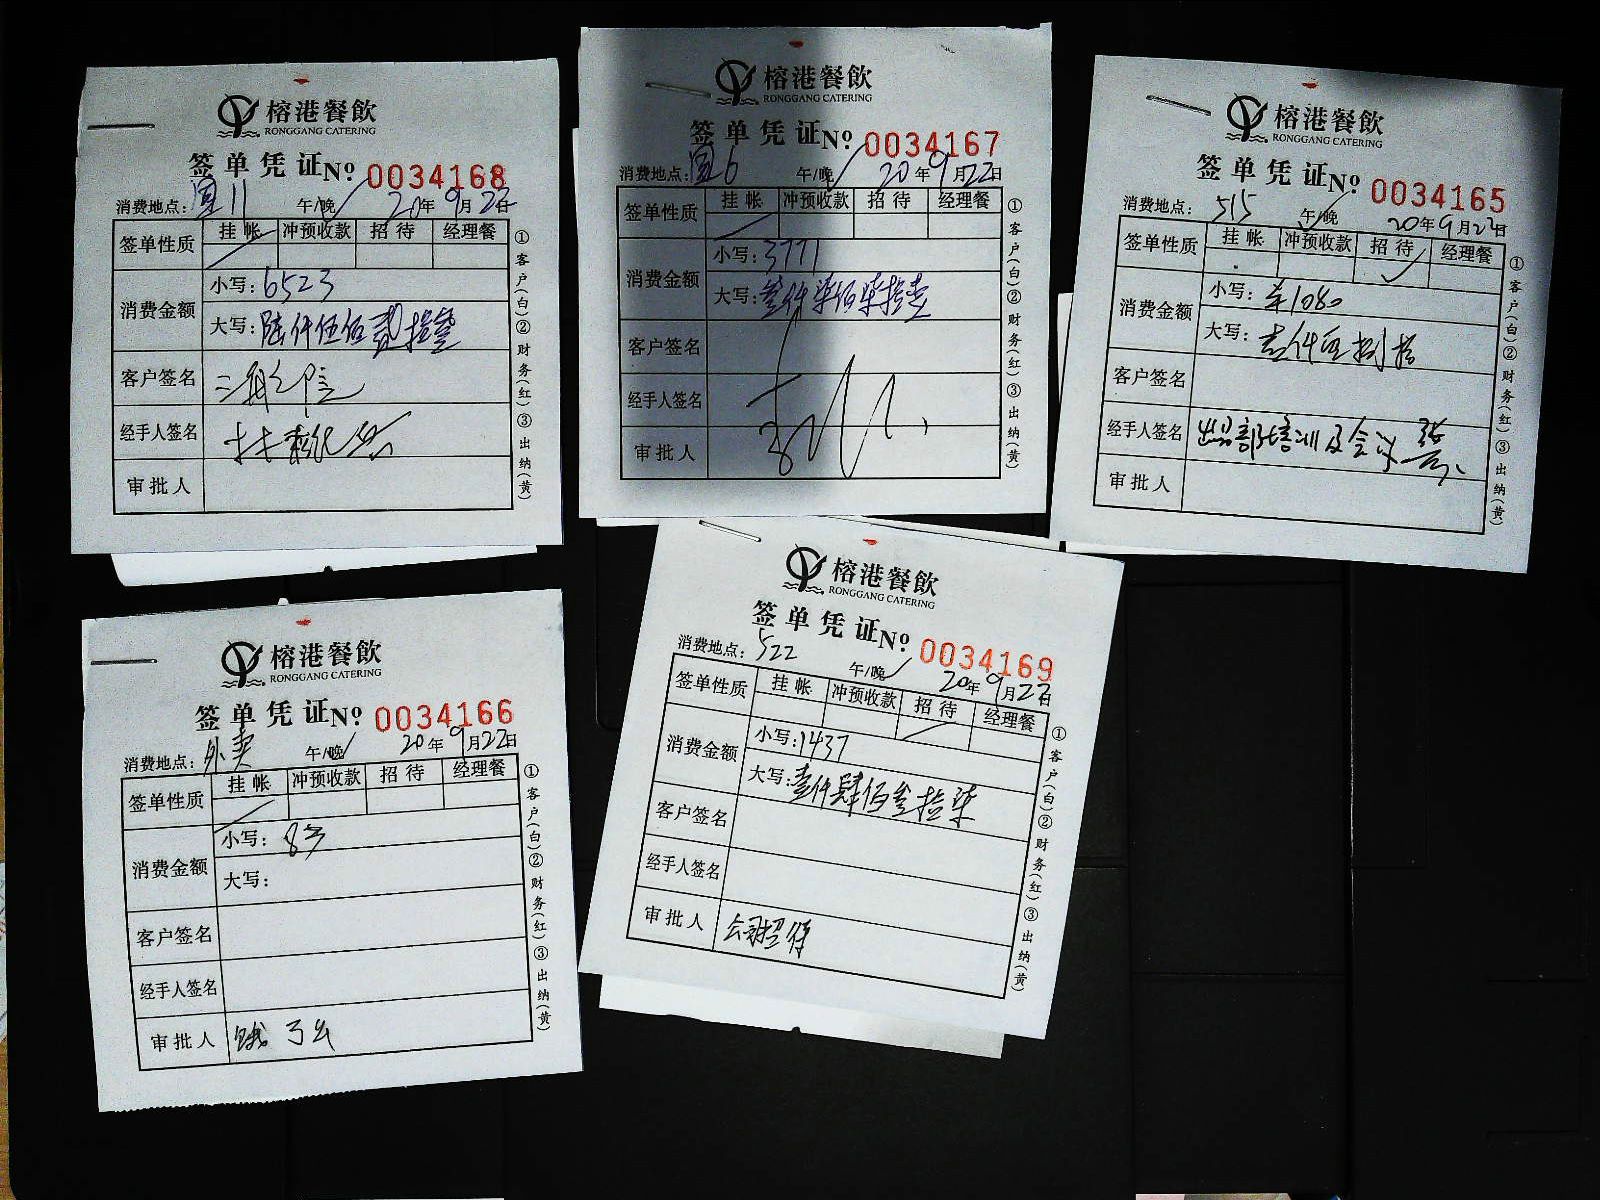 榕港餐飲
RONGGANG CATERING
签单凭证 No 0034168
消费地点: 圆11 午/晚 20年9月22日
签单性质 挂帐 冲预收款 招待 经理餐
消费金额 小写: 6523
大写: 陆仟伍佰贰拾叁
客户签名
经手人签名
审批人
①客户(白)②财务(红)③出纳(黄)
榕港餐飲
RONGGANG CATERING
签单凭证 No 0034167
消费地点: 圆6 午/晚 20年9月22日
签单性质 挂帐 冲预收款 招待 经理餐
消费金额 小写: 3771
大写: 叁仟柒佰柒拾壹
客户签名
经手人签名
审批人
①客户(白)②财务(红)③出纳(黄)
榕港餐飲
RONGGANG CATERING
签单凭证 No 0034165
消费地点: 515 午/晚 20年9月22日
签单性质 挂帐 冲预收款 招待 经理餐
消费金额 小写: 1080
大写: 壹仟零捌拾
客户签名
经手人签名 出品部培训及会议
审批人
①客户(白)②财务(红)③出纳(黄)
榕港餐飲
RONGGANG CATERING
签单凭证 No 0034166
消费地点: 外卖 午/晚 20年9月22日
签单性质 挂帐 冲预收款 招待 经理餐
消费金额 小写: 83
大写:
客户签名
经手人签名
审批人 饿了么
①客户(白)②财务(红)③出纳(黄)
榕港餐飲
RONGGANG CATERING
签单凭证 No 0034169
消费地点: 522 午/晚 20年9月22日
签单性质 挂帐 冲预收款 招待 经理餐
消费金额 小写: 1437
大写: 壹仟肆佰叁拾柒
客户签名
经手人签名
审批人 公司招待
①客户(白)②财务(红)③出纳(黄)